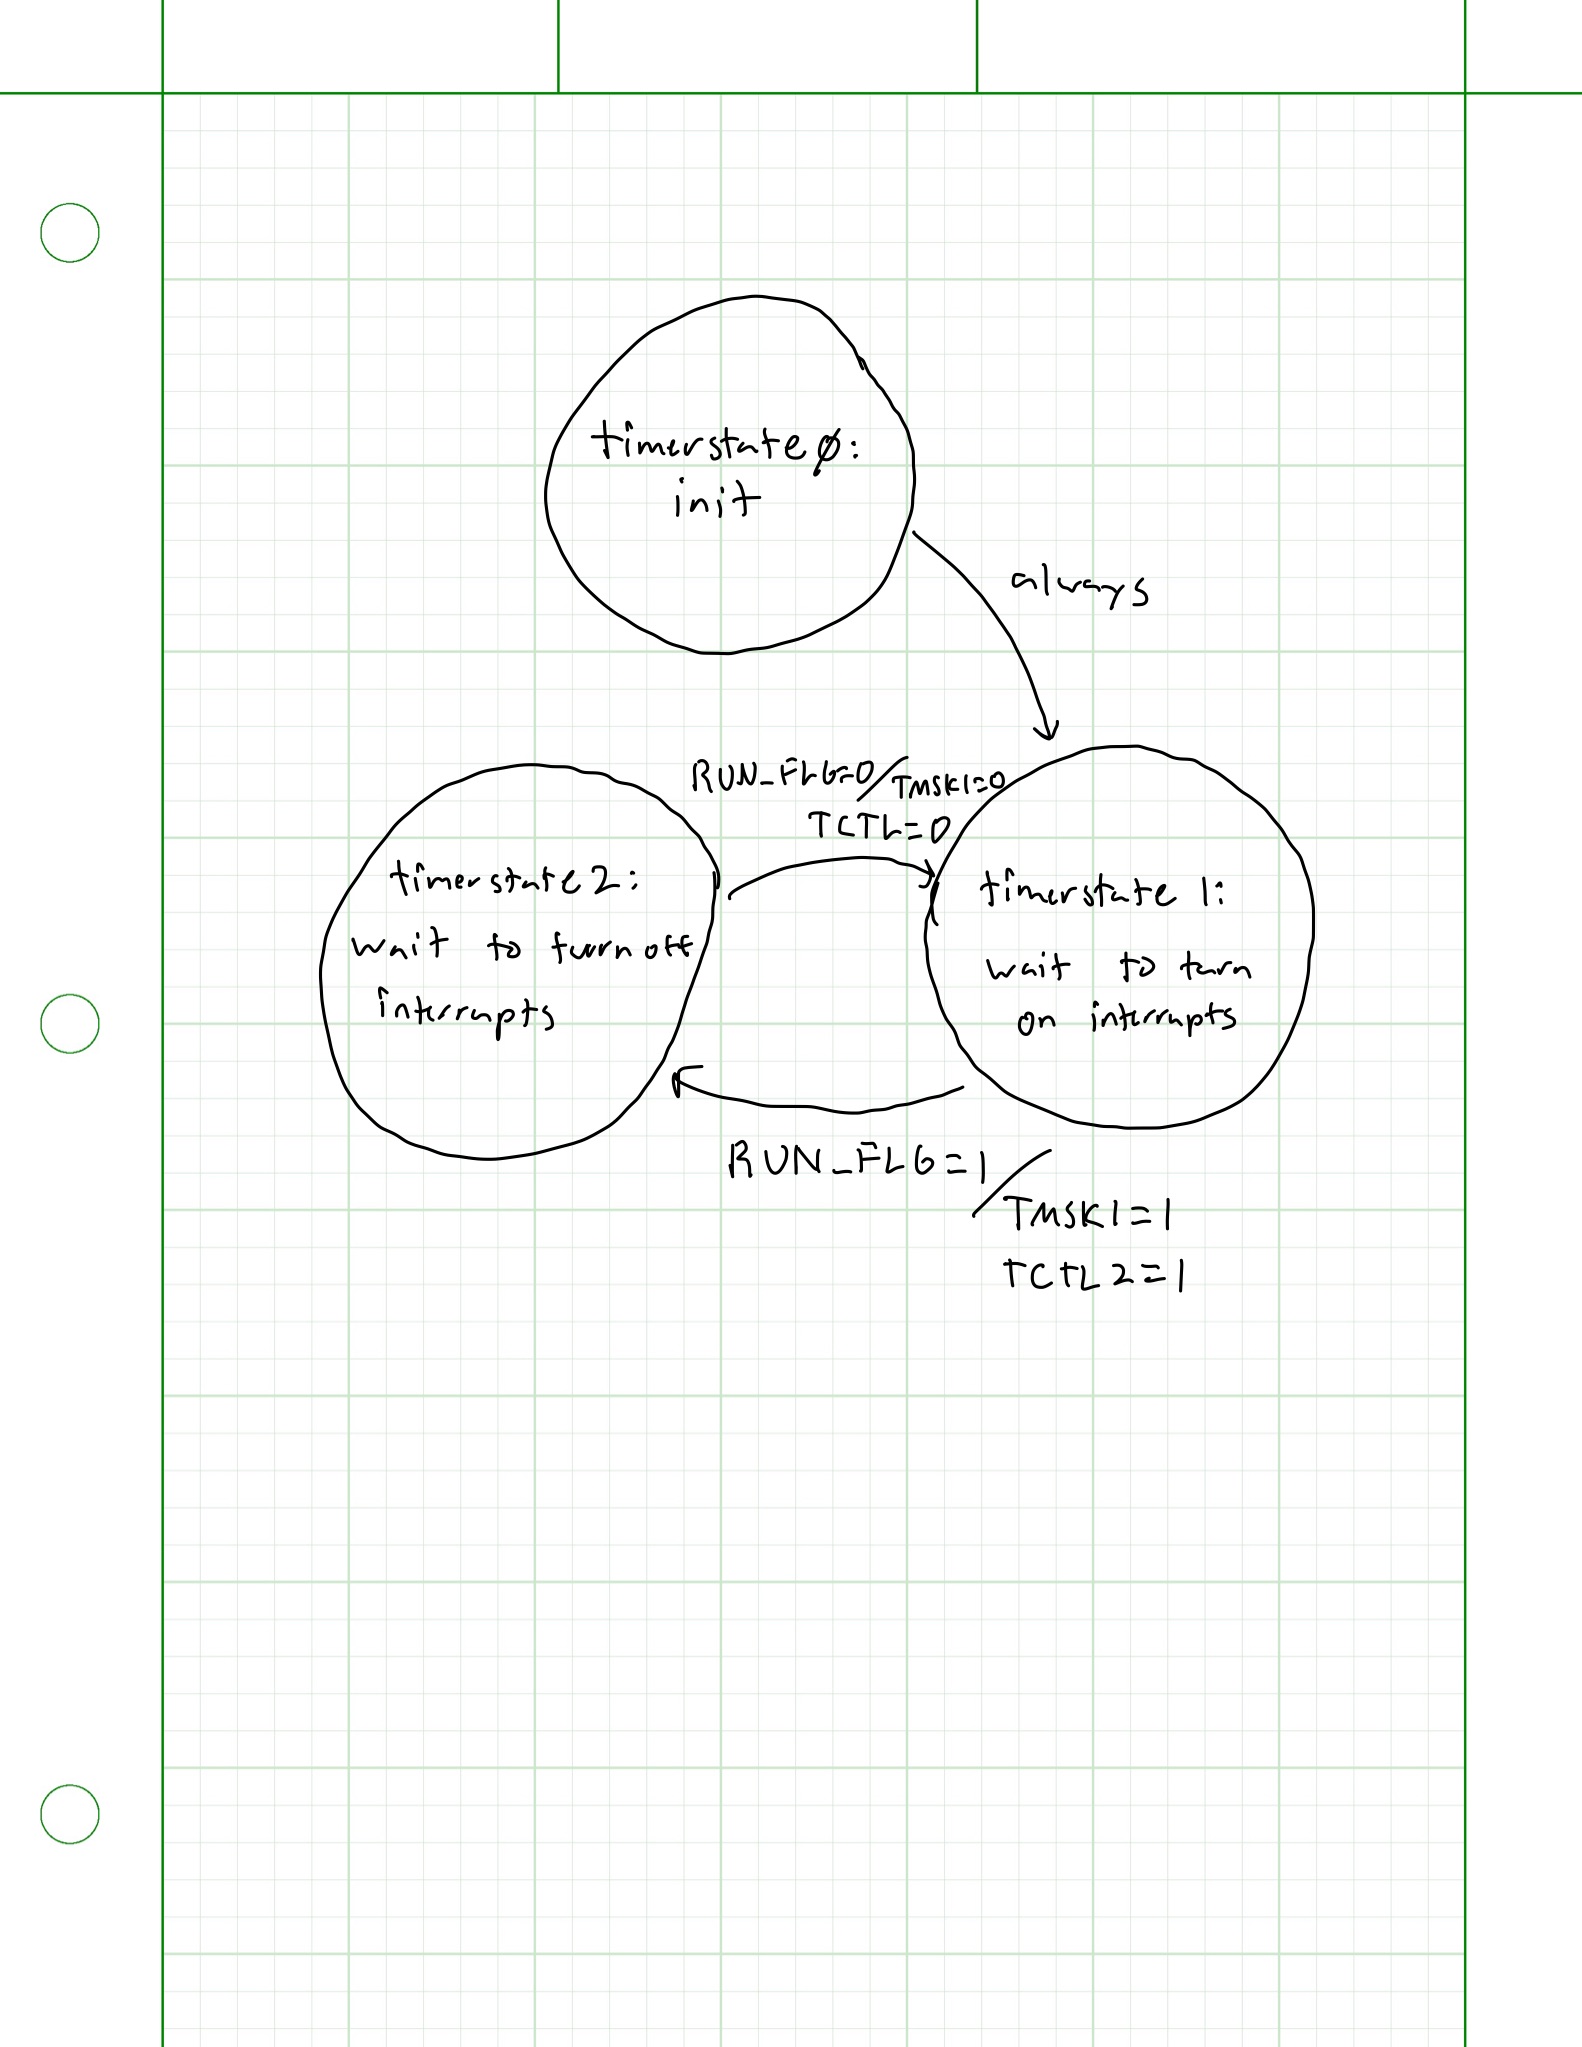 timerstate∅:
init
always
RUN_FLG=0/TMSK1=0
TCTL=0
timerstate2:
wait to turn off
interrupts
timerstate 1:
wait to turn
on interrupts
RUN_FLG=1/
TMSK1=1
TCTL2=1